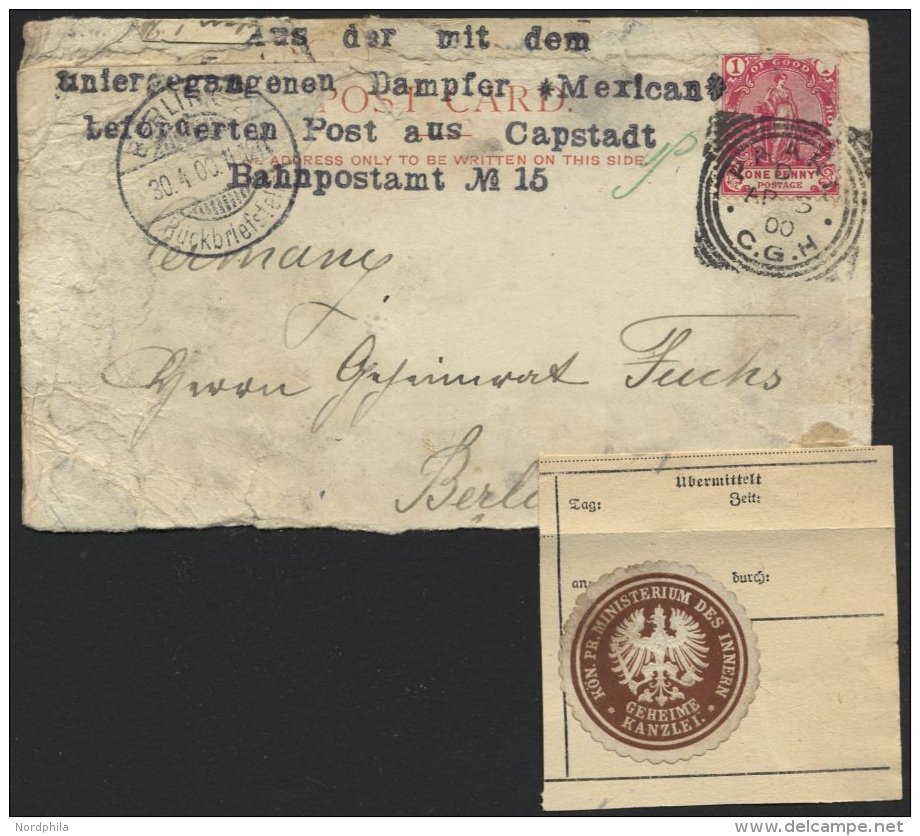 Aus der mit dem
untergegangenen Dampfer *Mexican*
beförderten Post aus Capstadt
Bahnpostamt № 15
POST CARD.
ADDRESS ONLY TO BE WRITTEN ON THIS SIDE
BERLIN
30.4.00
Rückbriefstelle
1
OF GOOD
ONE PENNY
POSTAGE
AP
00
C.G.H
Germany
Herrn Geheimrat Fuchs
Übermittelt
Tag: Zeit:
an: durch:
KÖN. PR. MINISTERIUM DES INNERN
GEHEIME
KANZLEI.
Nordphila
delcampe.net